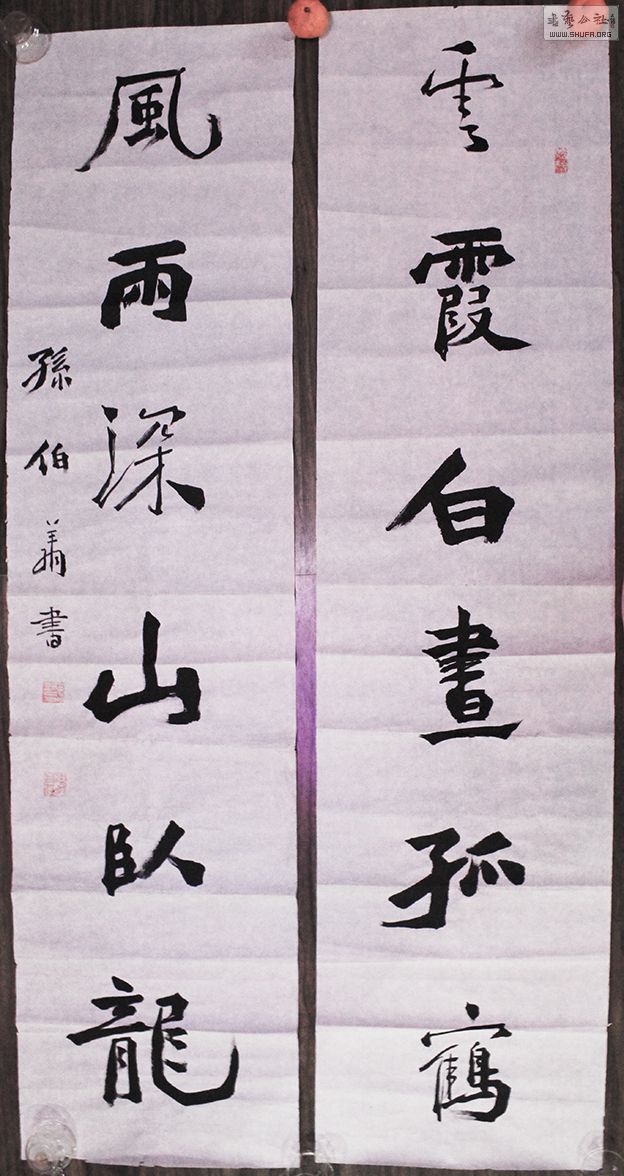 雲霞白晝孤鶴
風雨深山臥龍
孫伯翦書
書藝公社
WWW.SHUFA.ORG